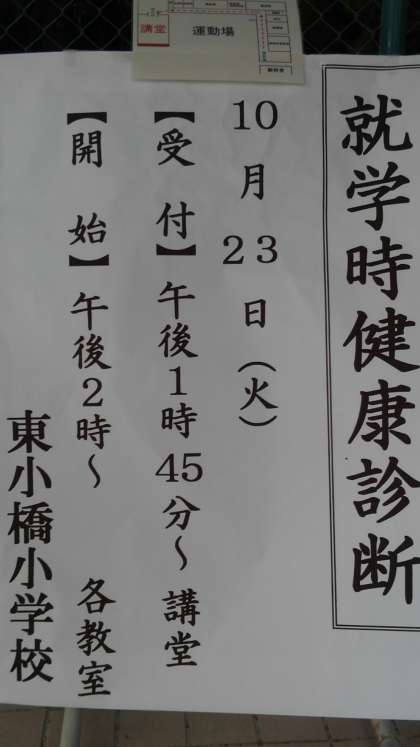 講堂
運動場
就学時健康診断
10月23日(火)
【受付】午後1時45分~講堂
【開始】午後2時~ 各教室
東小橋小学校